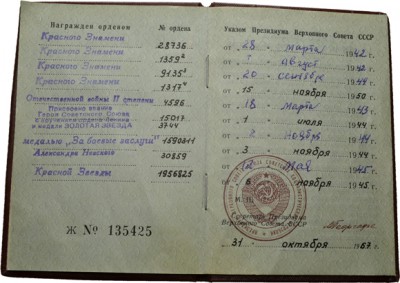 Награжден орденом № ордена
Красного Знамени 28736
Красного Знамени 1359²
Красного Знамени 9135³
Красного Знамени 1317⁴
Отечественной войны II степени 4596
Присвоено звание
Героя Советского Союза
с вручением ордена Ленина 15017
и медали ЗОЛОТАЯ ЗВЕЗДА 3744
медалью „За боевые заслуги"
Александра Невского 30859
Красной Звезды 1956825
Ж № 135425
Указом Президиума Верховного Совета СССР
от 28 марта 1942 г.
от августа 1942 г.
от 20 сентября
от 15 ноября 1950 г.
от 18 марта 1943 г.
от 1 июля 1944 г.
от ноября 1944 г.
от 3 ноября 1944 г.
от мая 1945 г.
от 6 ноября 1945 г.
М. П.
Секретарь Президиума
Верховного Совета СССР
31 октября 1967 г.